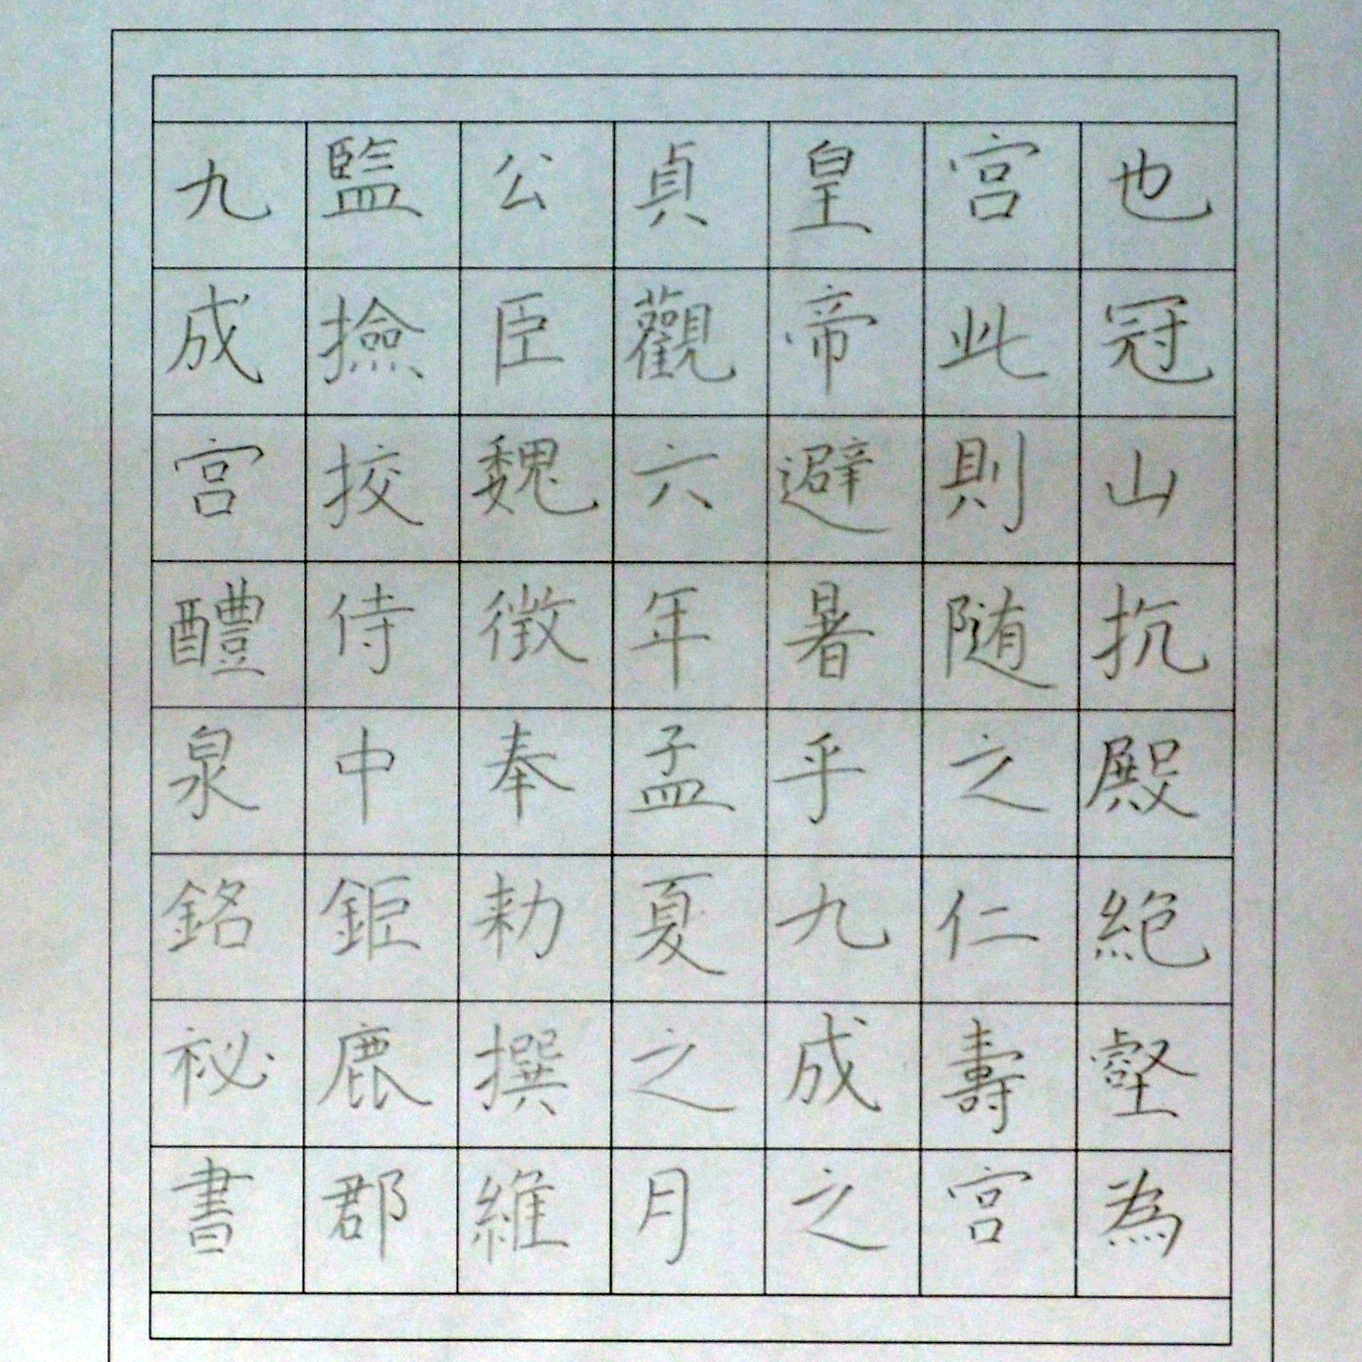 九成宮醴泉銘祕書
監撿挍侍中鉅鹿郡
公臣魏徵奉勅撰維
貞觀六年孟夏之月
皇帝避暑乎九成之
宮此則随之仁壽宮
也冠山抗殿絶壑為